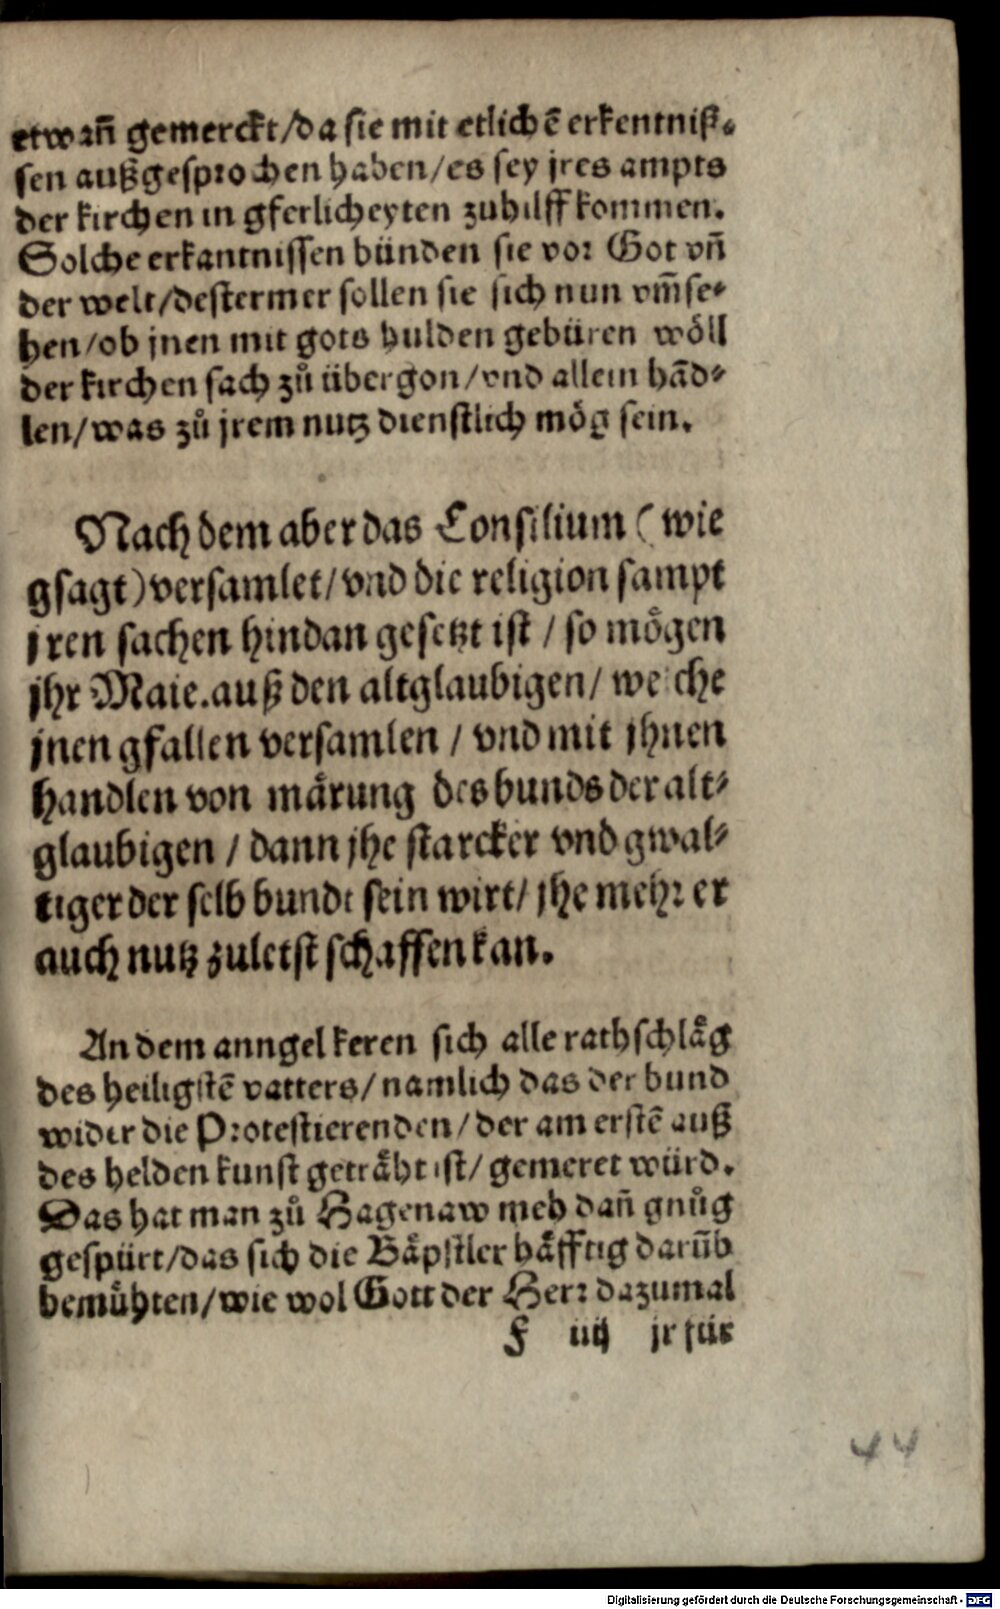 etwañ gemerckt/da sie mit etlichē erkentniß-
sen außgesprochen haben/es sey jres ampts
der kirchen in gferlicheyten zuhilff kommen.
Solche erkantnissen bünden sie vor Got vñ
der welt/destermer sollen sie sich nun vm̃se-
hen/ob jnen mit gots hulden gebüren wöll
der kirchen sach zů übergon/vnd allein hād-
len/was zů jrem nutz dienstlich mög sein.
Nach dem aber das Consilium (wie
gsagt) versamlet/vnd die religion sampt
jren sachen hindan gesetzt ist / so mögen
jhr Maie. auß den altglaubigen/ welche
jnen gfallen versamlen / vnd mit jhnen
handlen von märung des bunds der alt-
glaubigen / dann jhe starcker vnd gwal-
tiger der selb bundt sein wirt/ jhe mehr er
auch nutz zuletst schaffen kan.
An dem anngel keren sich alle rathschläg
des heiligstē vatters/ namlich das der bund
wider die Protestierenden/ der am erstē auß
des helden kunst geträht ist/ gemeret würd.
Das hat man zů Hagenaw meh dañ gnůg
gespürt/das sich die Bäpstler häfftig darüb
bemühten/wie wol Gott der Herr dazumal
F iiij jr für
44
Digitalisierung gefördert durch die Deutsche Forschungsgemeinschaft - DFG